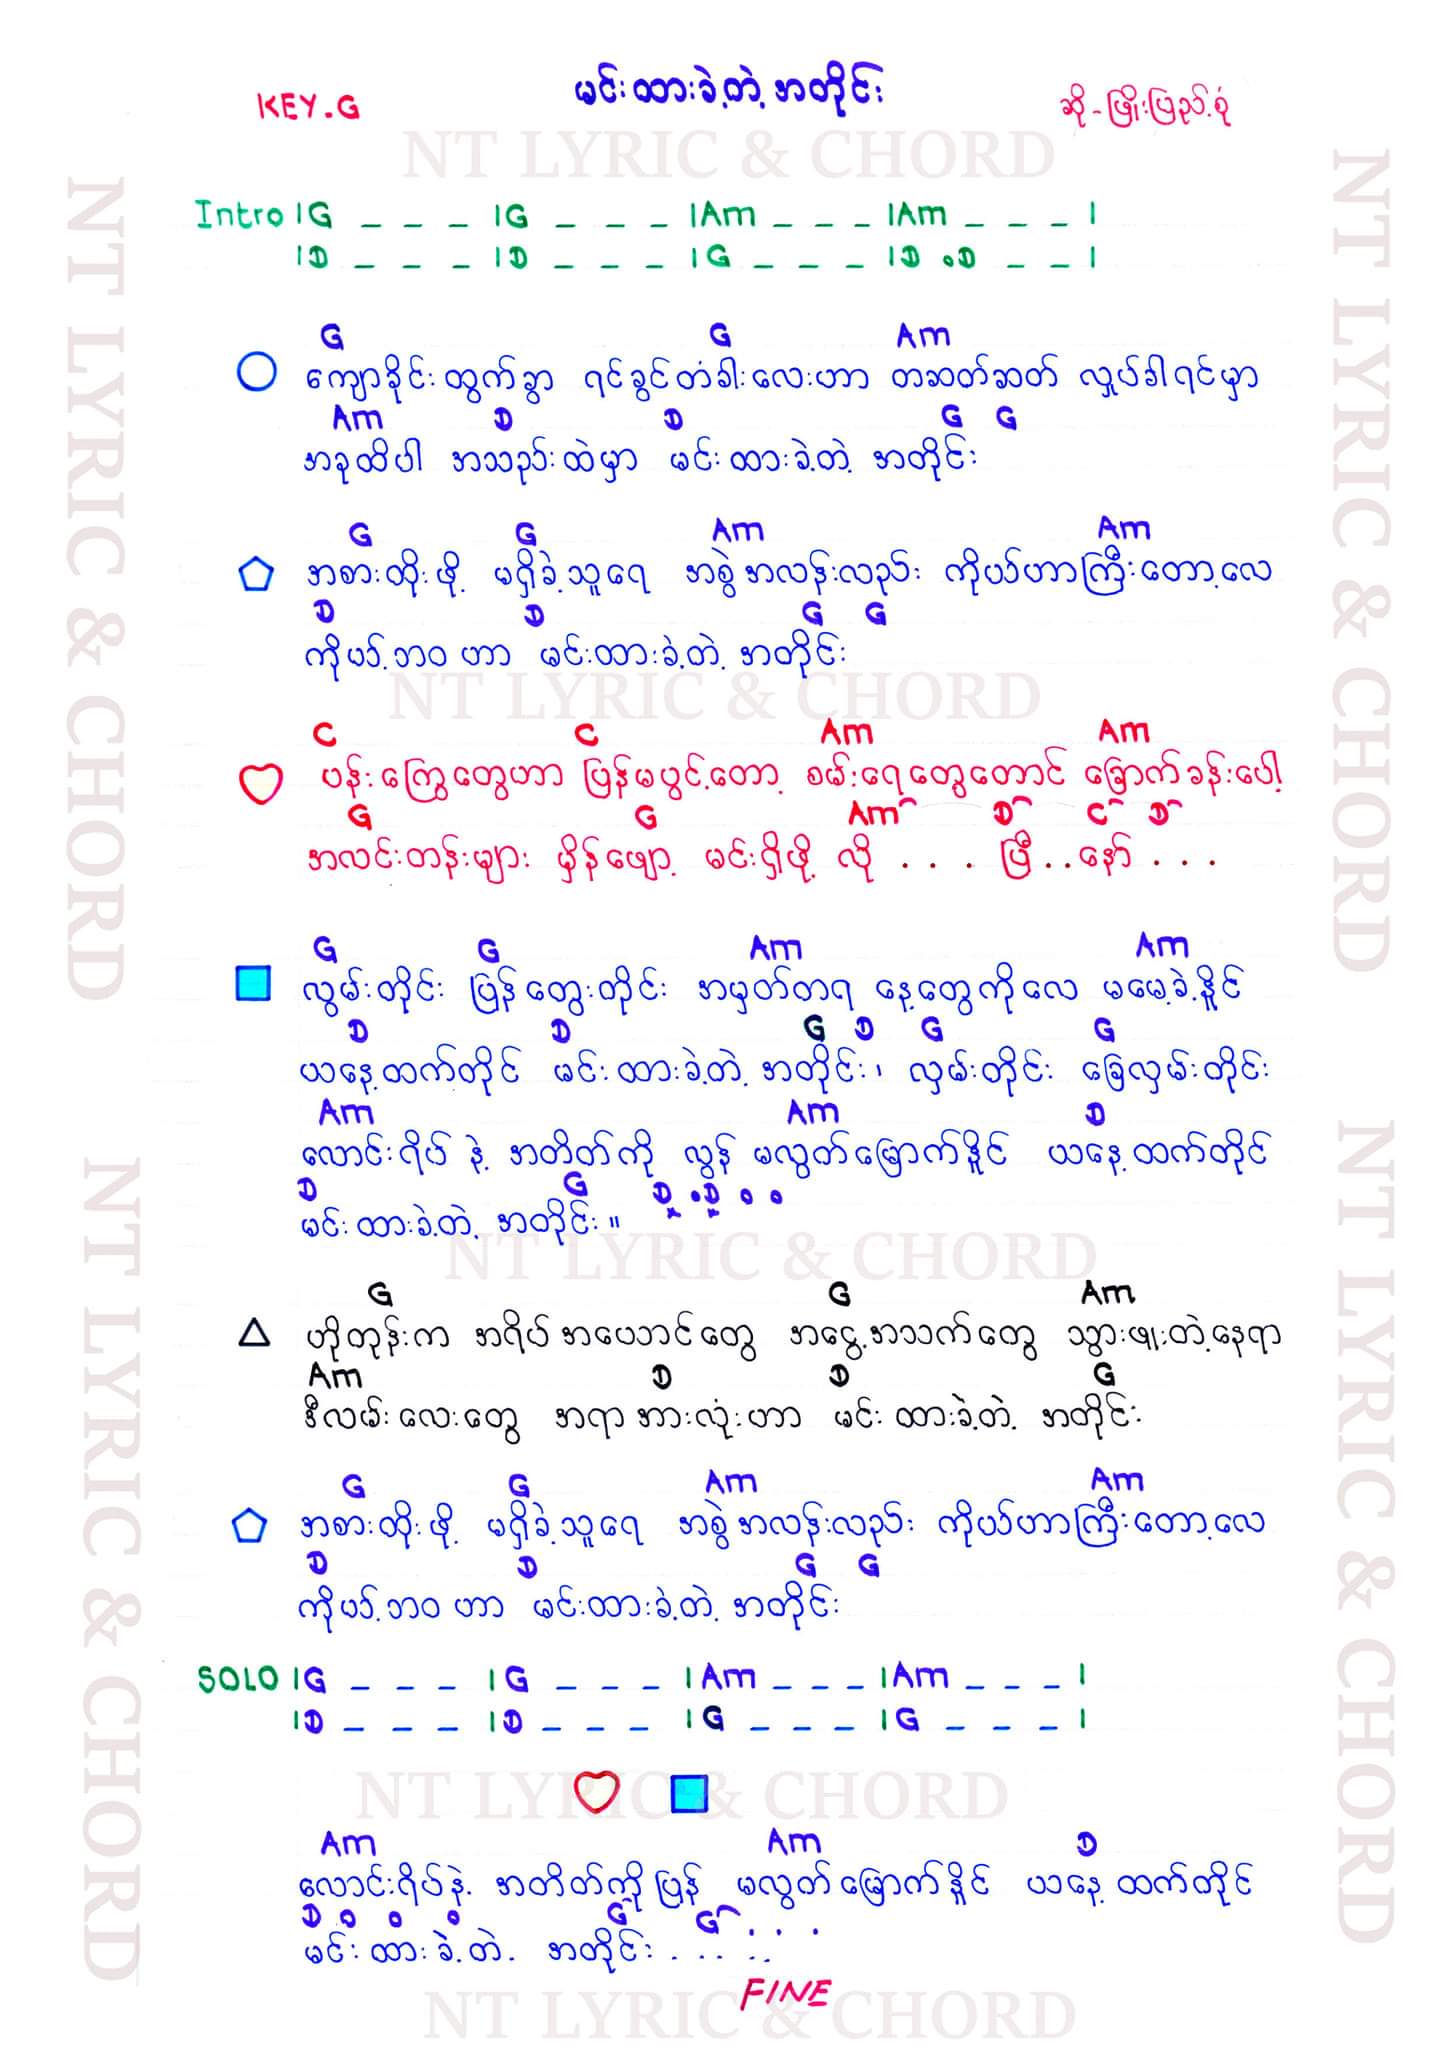 KEY.G
မင်းထားခဲ့တဲ့အတိုင်း
ဆို-ဖြိုးပြည့်စုံ
NT LYRIC & CHORD
Intro |G _ _ _ |G _ _ _ |Am _ _ _ |Am _ _ _ |
|D _ _ _ |D _ _ _ |G _ _ _ |D .D _ _ |
G G Am
ကျောခိုင်းထွက်ခွာ ရင်ခွင်တံခါးလေးဟာ တဆတ်ဆတ် လှုပ်ခါရင်မှာ
Am D D G G
အခုထိပါ အသည်းထဲမှာ မင်းထားခဲ့တဲ့ အတိုင်း
G G Am Am
အစားထိုးဖို့ မရှိခဲ့သူရေ အစွဲအလန်းလည်း ကိုယ်ဟာကြီးတော့လေ
D D G G
ကိုယ့်ဘဝဟာ မင်းထားခဲ့တဲ့ အတိုင်း
NT LYRIC & CHORD
C C Am Am
ပန်းကြွေတွေဟာ ပြန်မပွင့်တော့ စမ်းရေတွေတောင် ခြောက်ခန်းပေါ့
G G Am D C D
အလင်းတန်းများ မှိန်ဖျော့ မင်းရှိဖို့ လို . . . ပြီ . . နော် . . .
G G Am Am
လွမ်းတိုင်း ပြန်တွေးတိုင်း အမှတ်တရ နေ့တွေကိုလေ မမေ့ခဲ့နိူင်
D D G D G G
ယနေ့ထက်တိုင် မင်းထားခဲ့တဲ့ အတိုင်း၊ လှမ်းတိုင်း ခြေလှမ်းတိုင်း
Am Am D
လောင်းရိပ်နဲ့ အတိတ်ကို လွန် မလွတ်မြောက်နိူင် ယနေ့ထက်တိုင်
D G D .D o o
မင်းထားခဲ့တဲ့ အတိုင်း။
NT LYRIC & CHORD
G G Am
ဟိုတုန်းက အရိပ်အယောင်တွေ အငွေ့အသက်တွေ သွားဖူးတဲ့နေရာ
Am D D G
ဒီလမ်းလေးတွေ အရာအားလုံးဟာ မင်းထားခဲ့တဲ့ အတိုင်း
G G Am Am
အစားထိုးဖို့ မရှိခဲ့သူရေ အစွဲအလန်းလည်း ကိုယ်ဟာကြီးတော့လေ
D D G G
ကိုယ့်ဘဝဟာ မင်းထားခဲ့တဲ့ အတိုင်း
SOLO |G _ _ _ |G _ _ _ |Am _ _ _ |Am _ _ _ |
|D _ _ _ |D _ _ _ |G _ _ _ |G _ _ _ |
NT LYRIC & CHORD
Am Am D
လောင်းရိပ်နဲ့ အတိတ်ကိုပြန် မလွတ်မြောက်နိူင် ယနေ့ထက်တိုင်
D o o o G G . . .
မင်းထားခဲ့တဲ့ အတိုင်း . . . . .
FINE
NT LYRIC & CHORD
NT LYRIC & CHORD
NT LYRIC & CHORD
NT LYRIC & CHORD
NT LYRIC & CHORD